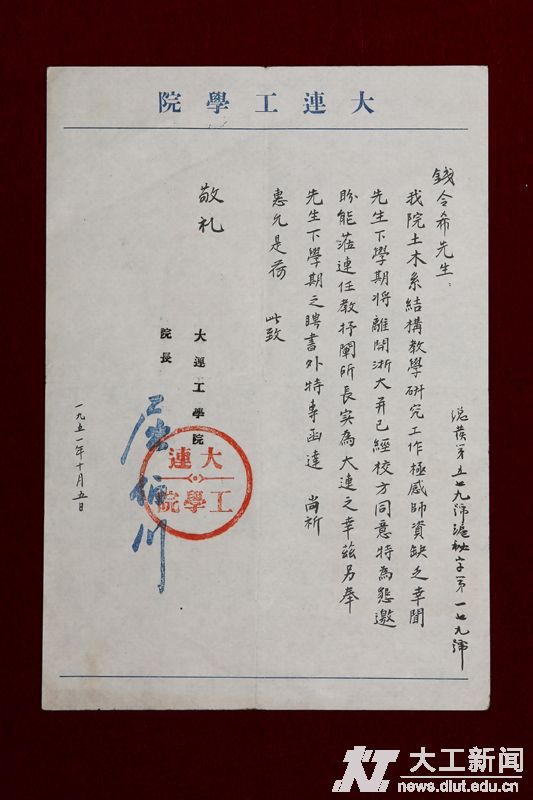 大連工學院
錢令希先生：
我院土木系結構教學研究工作極感師資缺乏幸聞
先生下學期將離開浙大并已經校方同意特為懇邀
盼能蒞連任教抒闡所長实為大連之幸茲另奉
先生下學期之聘書外特專函達 尚祈
惠允是荷 此致
敬礼
大連工學院
院長
屈伯川
大連
工學院
一九五一年十月五日
第五七九號
字第一七九號
大工新闻
news.dlut.edu.cn